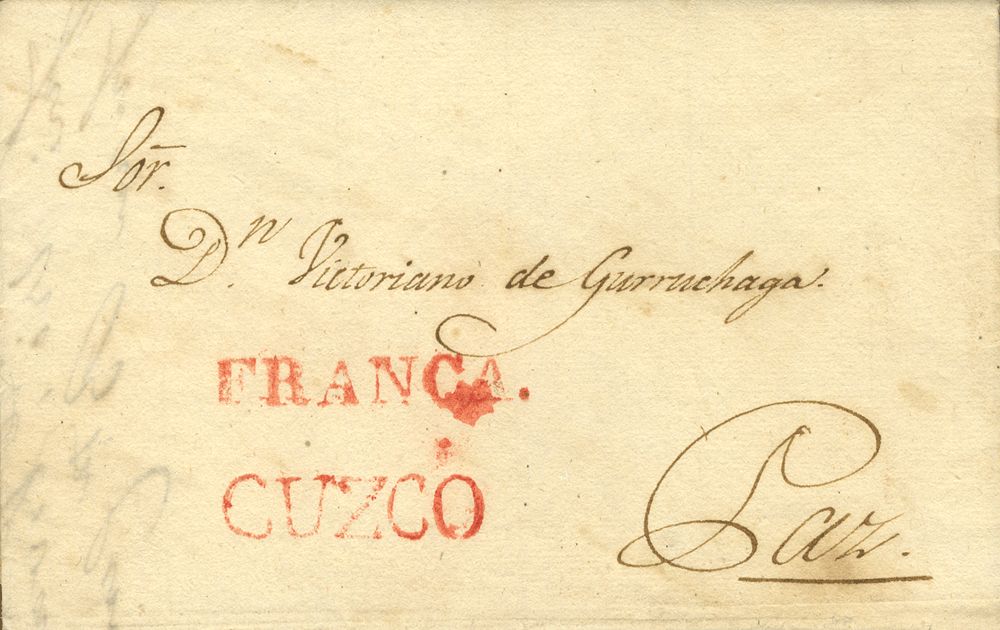 Sor.
D.n Victoriano de Gurruchaga.
FRANCA.
CUZCO
Paz.